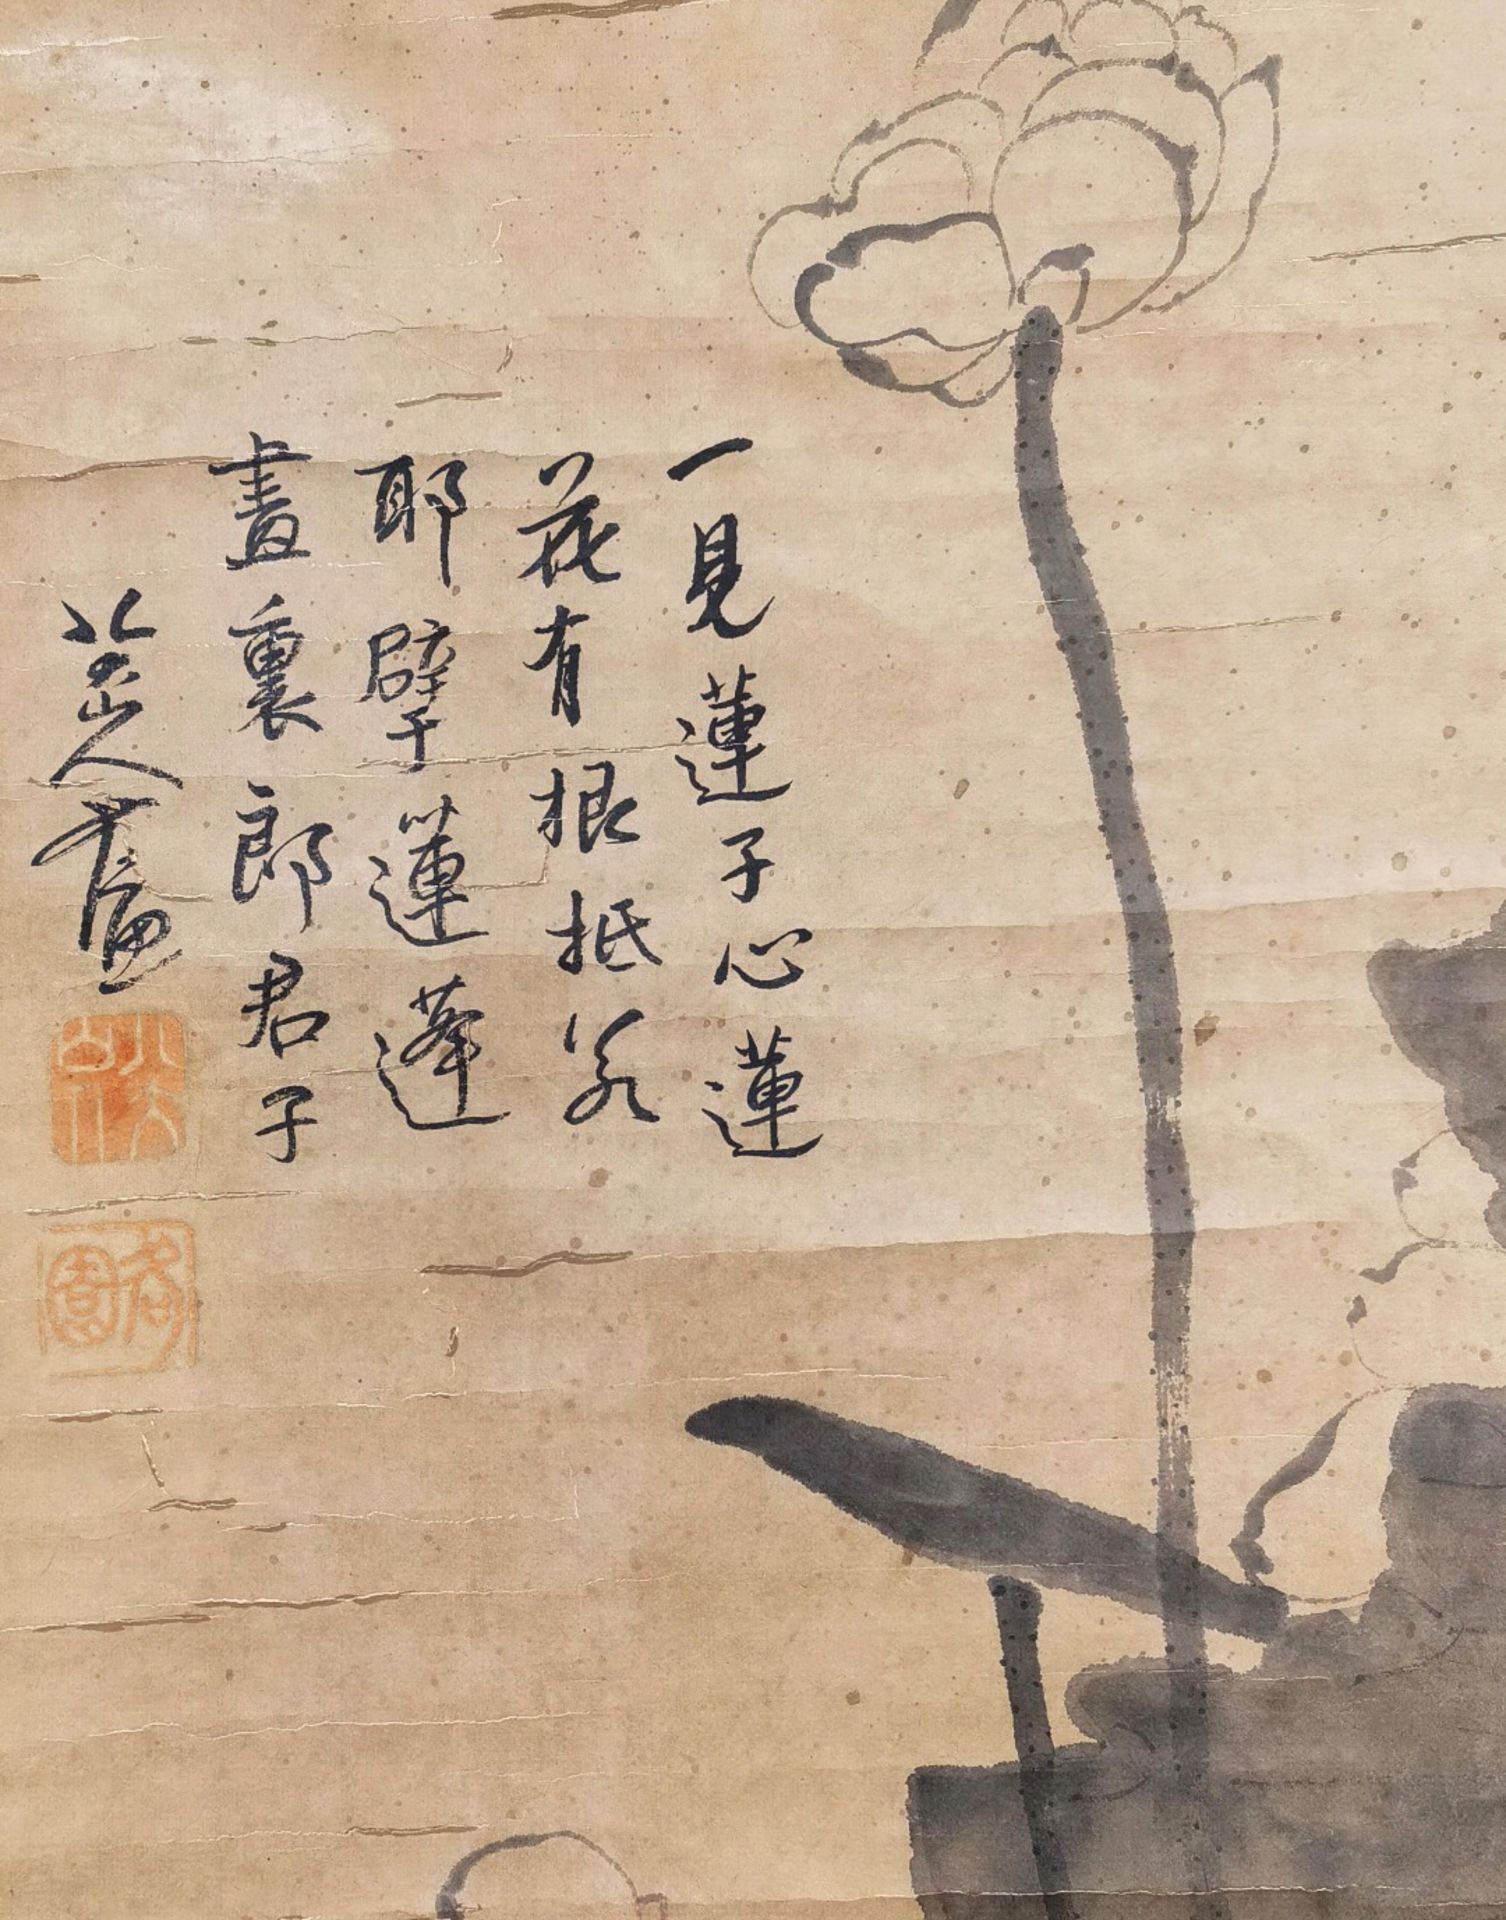 一見蓮子心蓮
花有根抵若
耶擘蓮蓬
畫裏郎君子
八大山人畫
八大山人